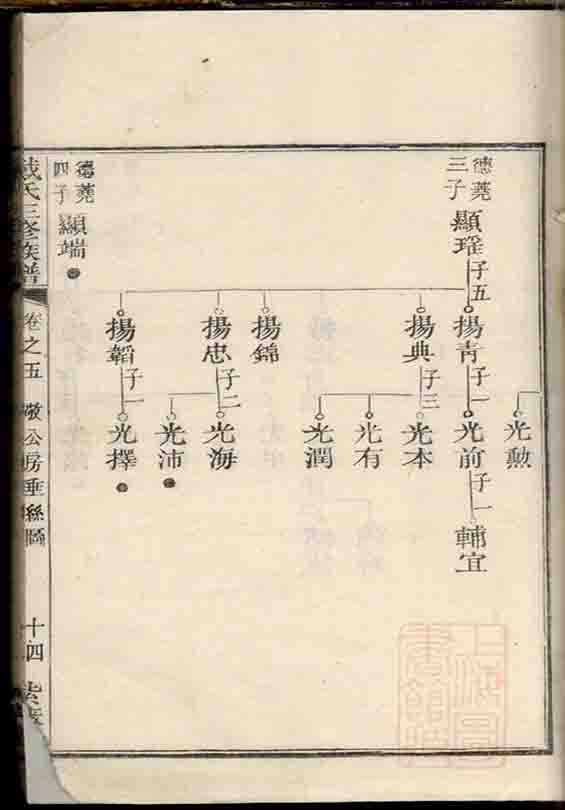 光勳
德蕘
三子
顯瑤
子五
揚青
子一
光前
子一
輔宜
揚典
子三
光本
光有
光潤
揚錦
揚忠
子二
光海
光沛
揚韜
子一
光擇
德蕘
四子
顯端
戴氏三修族譜
卷之五
敬公房垂絲圖
十四
上海圖書館藏